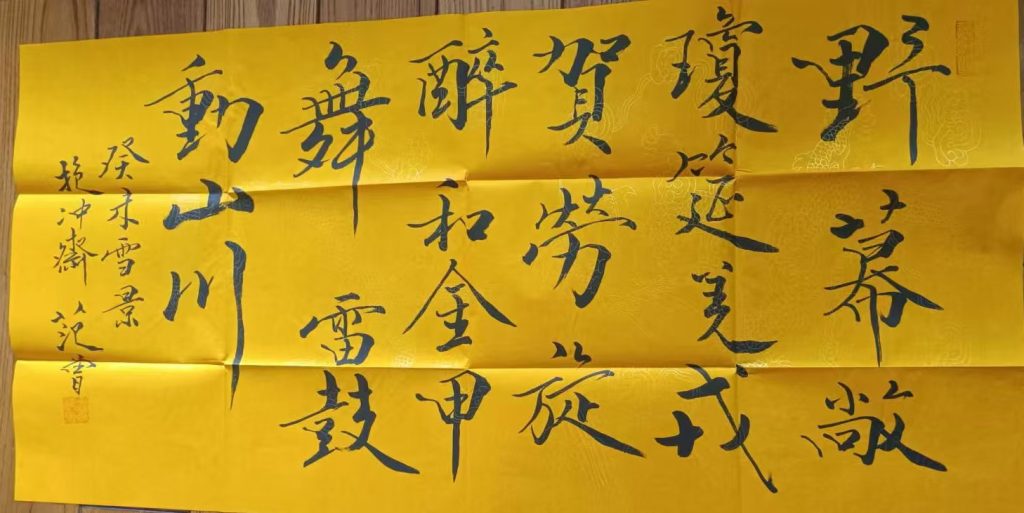 野幕敞
瓊筵羌戎
賀勞旋
醉和金甲
舞雷鼓
動山川
癸未雪景
抱冲齋范曾